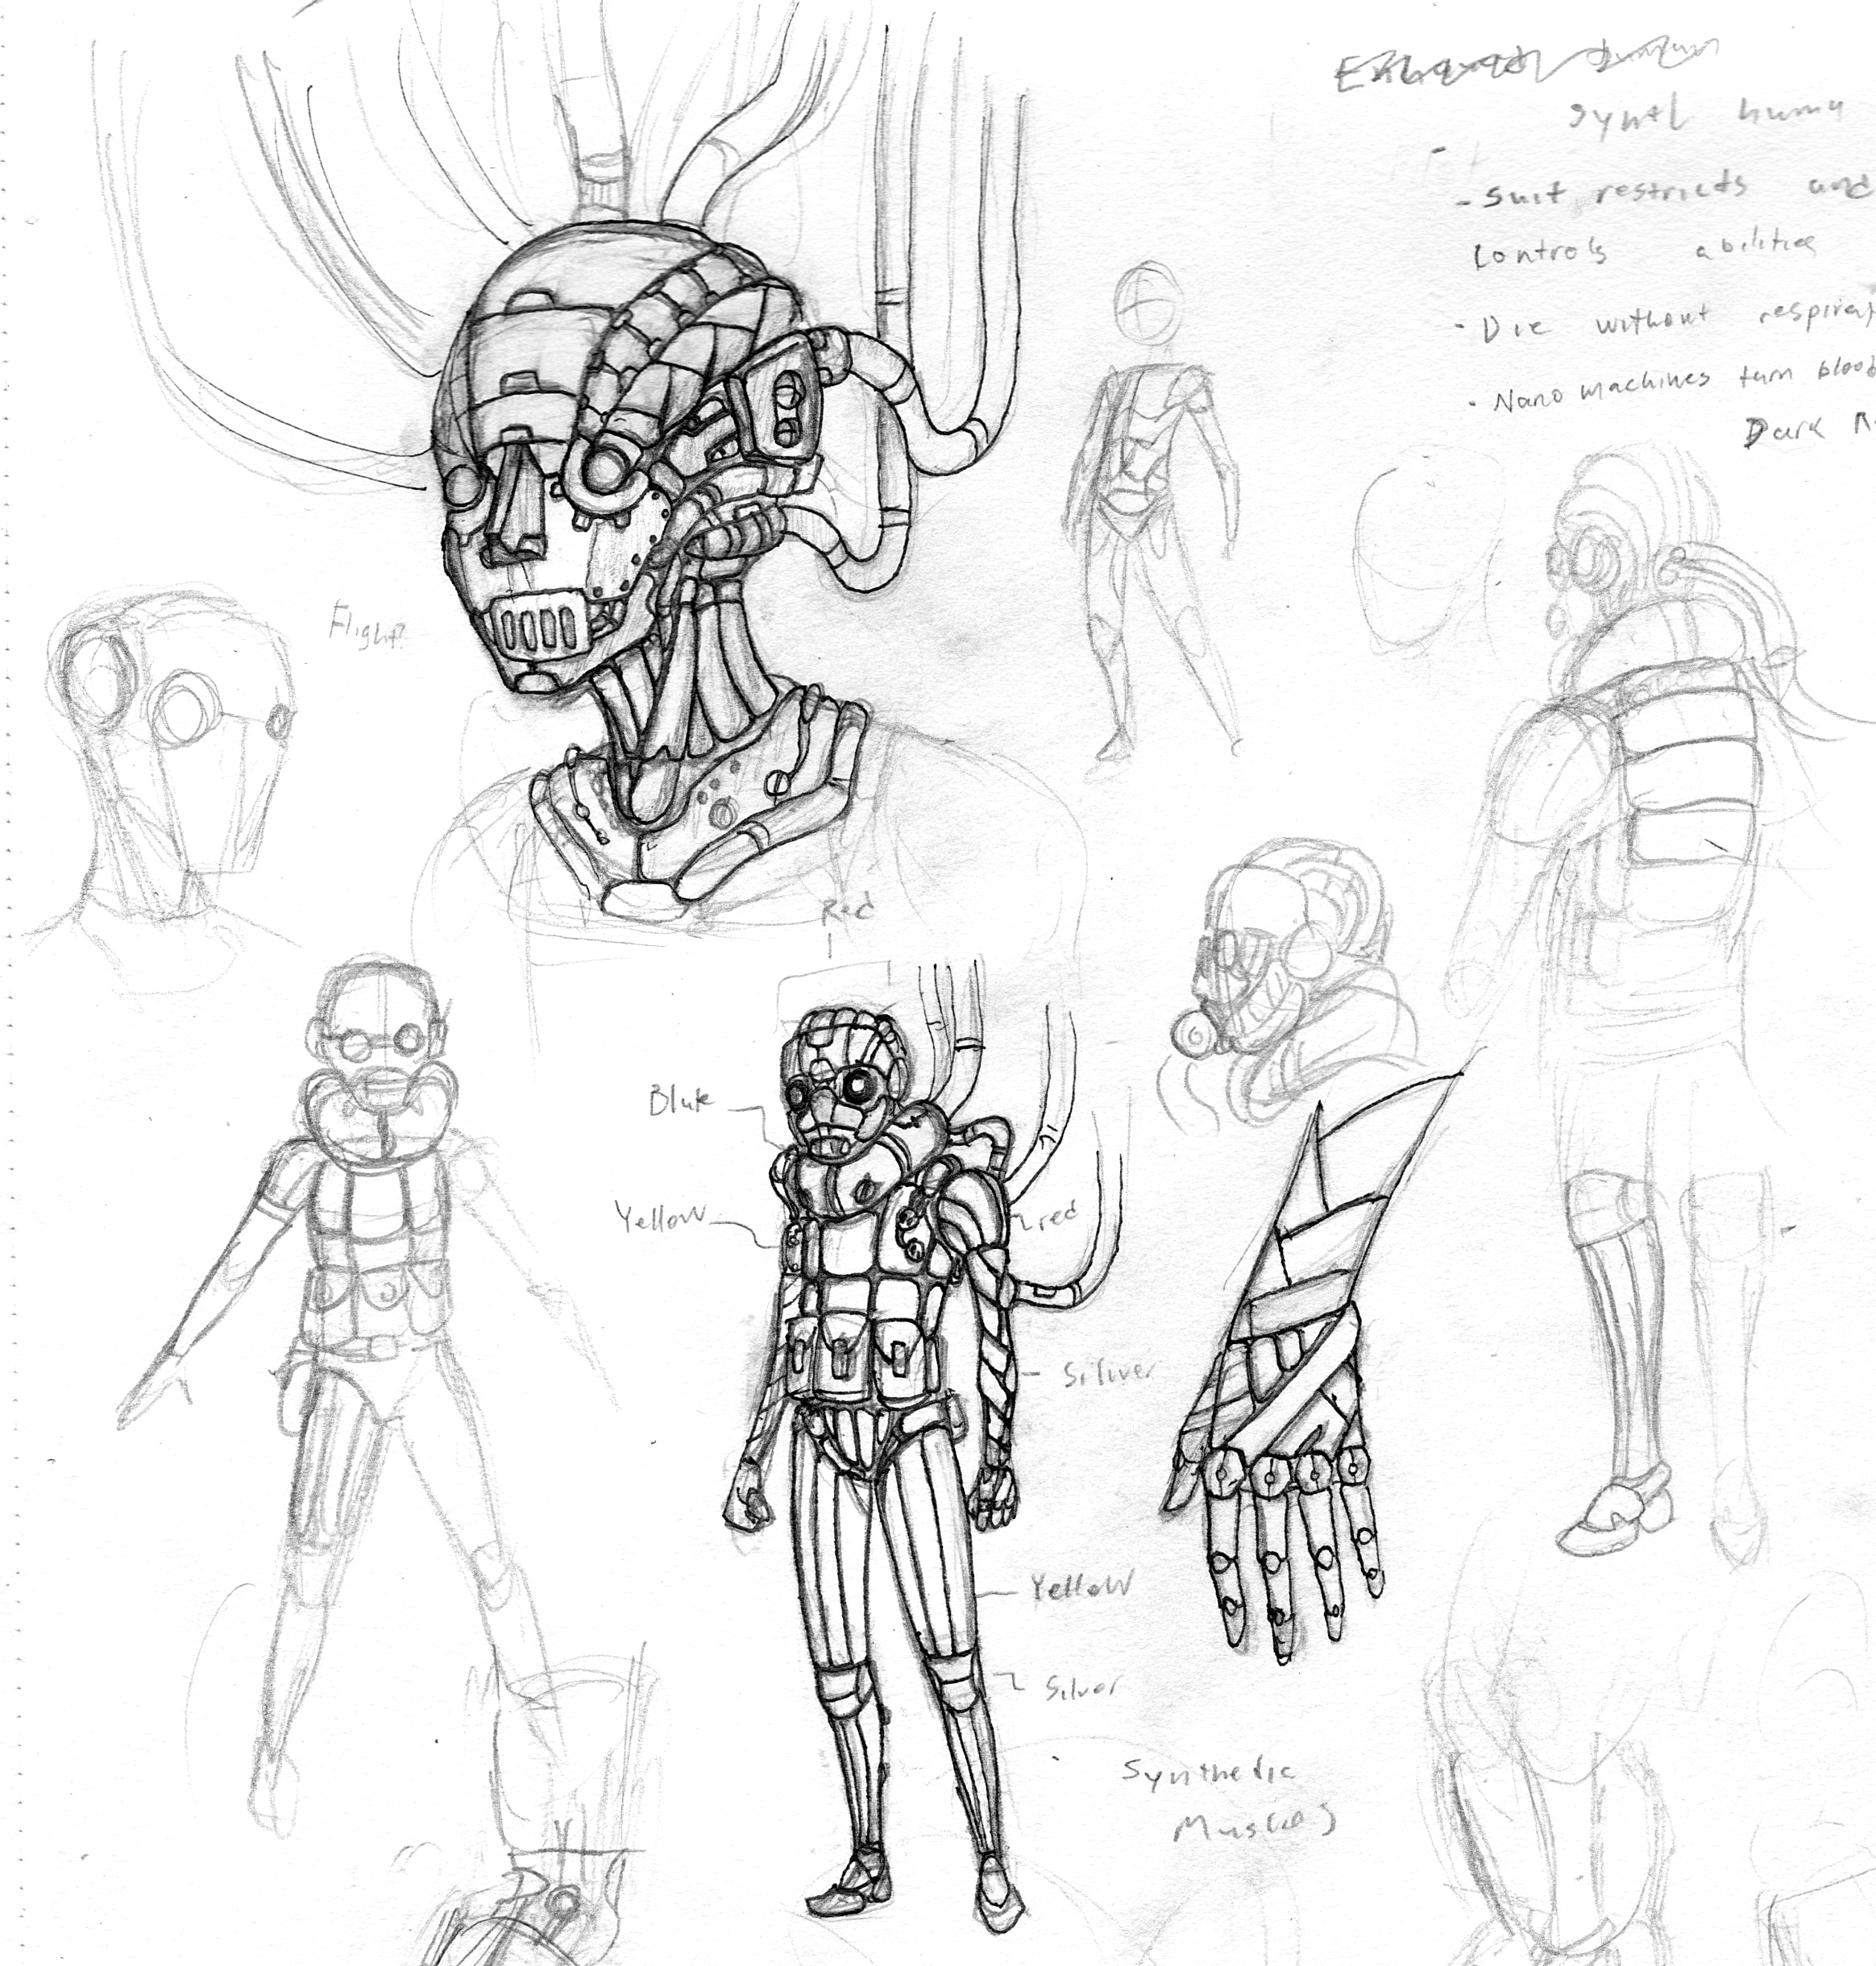 Synth huma
- Suit restricts and
Controls abilities
- Die without respirat
- Nano machines turn blood
Dark R
Flight?
Red
Blue
Yellow
red
Siliver
Yellow
Silver
Synthetic
Muscles